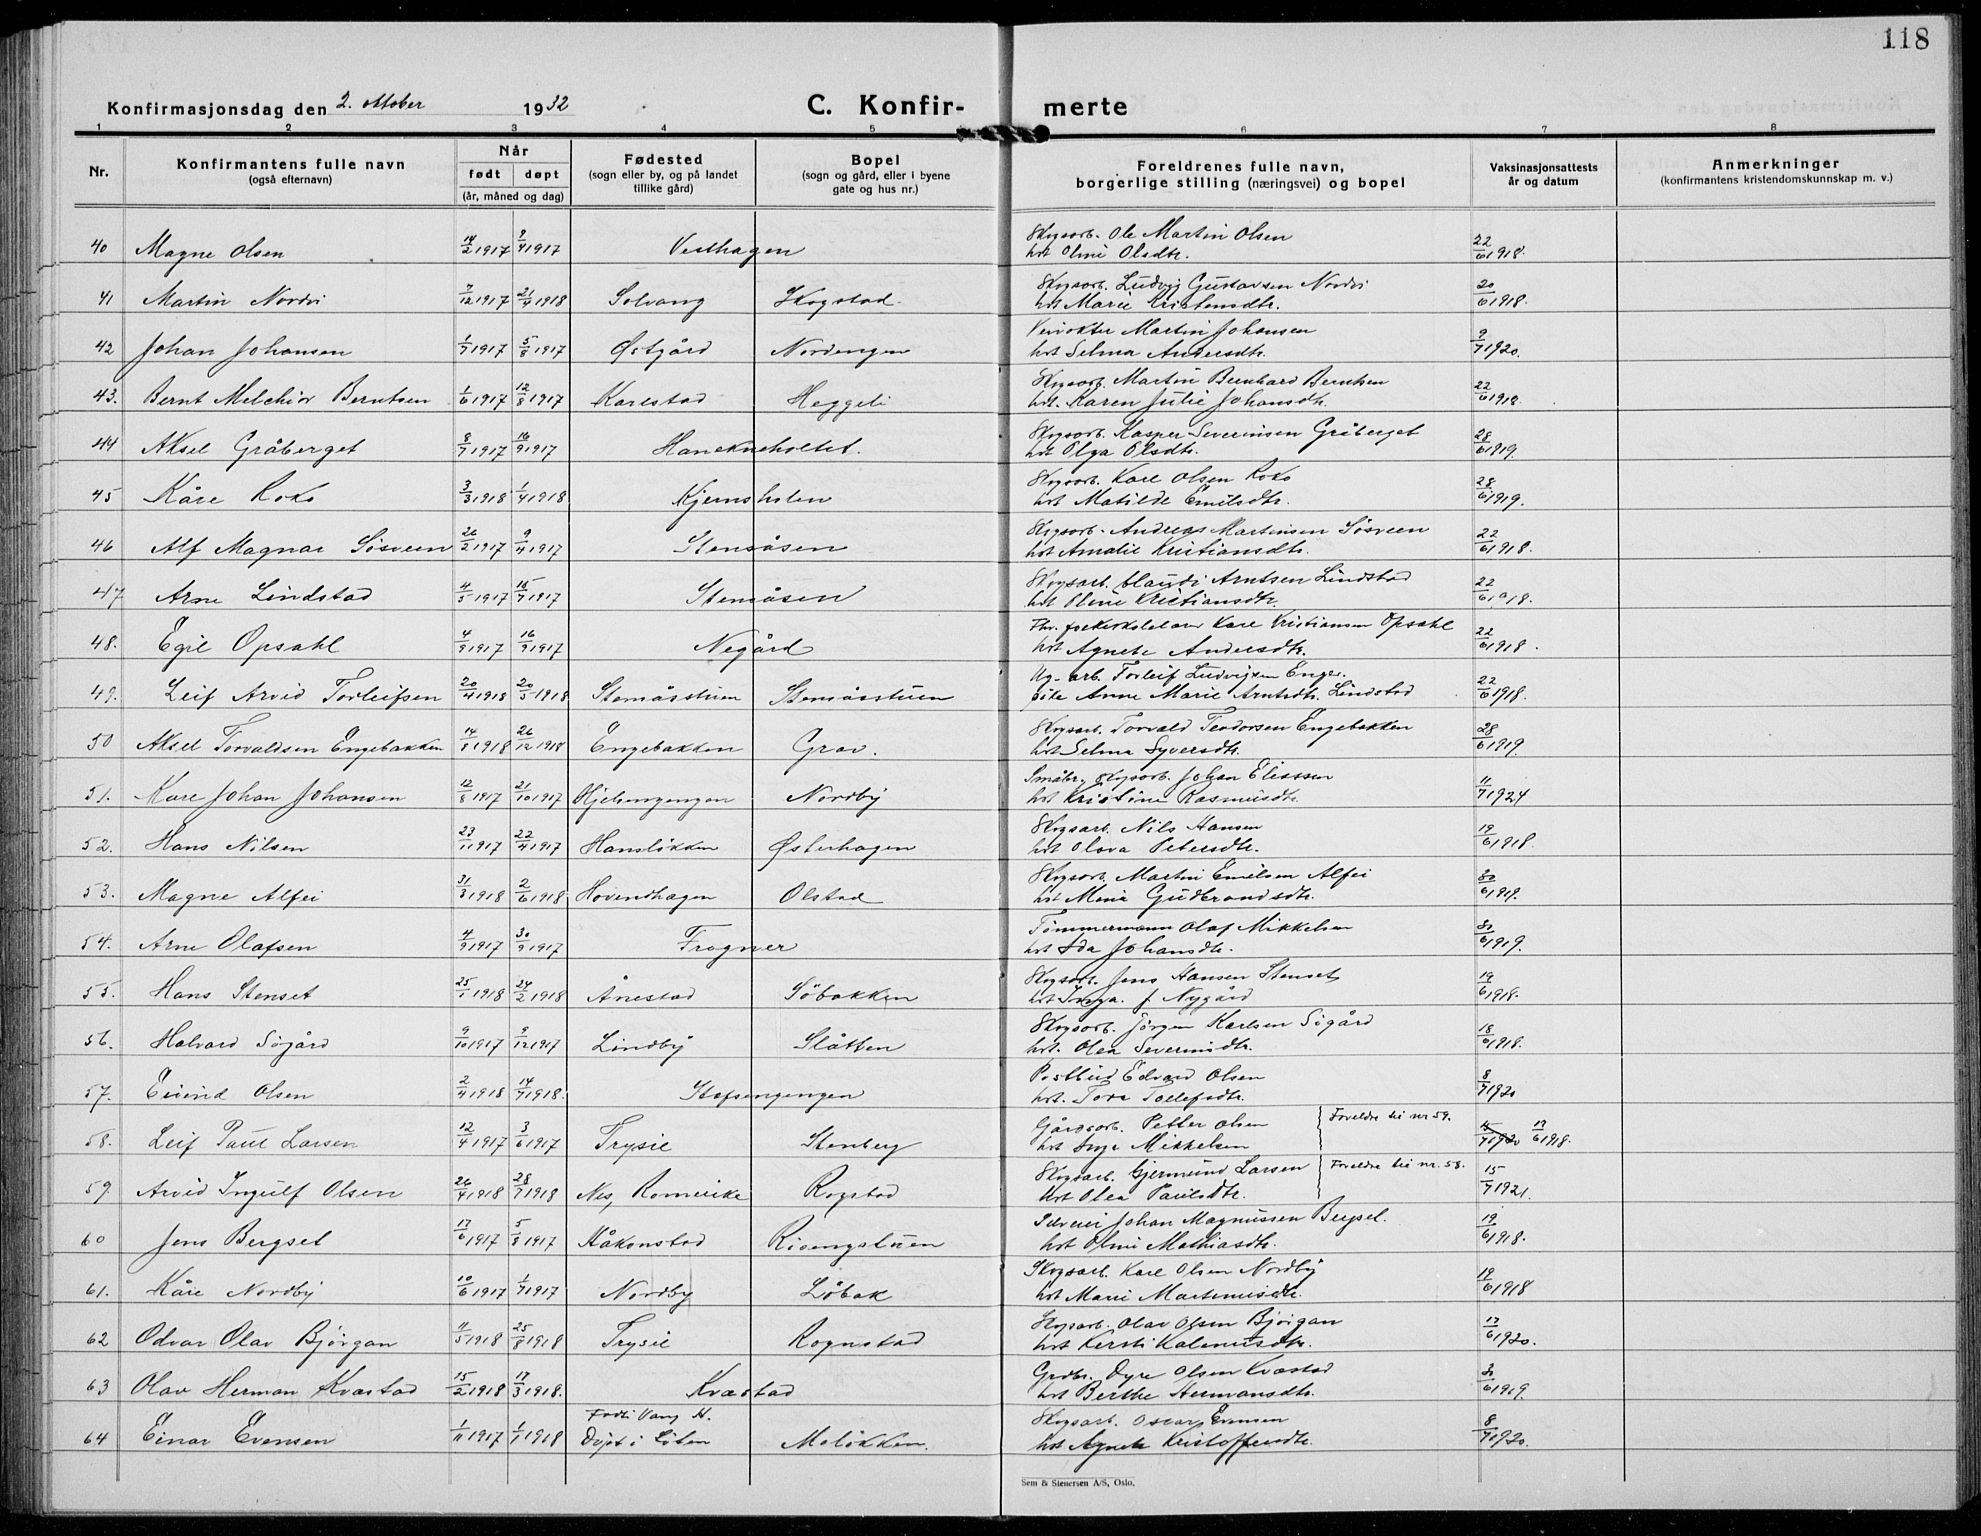 118
Konfirmasjonsdag den 2. oktober 1932
C. Konfir- merte
1 2 3 4 5 6 7 8
Nr.
Konfirmantens fulle navn
(også efternavn)
Når
født døpt
(år, måned og dag)
Fødested
(sogn eller by, og på landet
tillike gård)
Bopel
(sogn og gård, eller i byene
gate og hus nr.)
Foreldrenes fulle navn,
borgerlige stilling (næringsvei) og bopel
Vaksinasjonsattests
år og datum
Anmerkninger
(konfirmantens kristendomskunnskap m. v.)
Skogsarb. Ole Martin Olsen
40 Magne Olsen 14/2 1917 9/4 1917 Vesthagen hst Oline Olsdtr. 22/6 1918.
Skogsarb. Ludvig Gustavsen Nordvi
41 Martin Nordvi 7/12 1917 21/4 1918 Solvang Skogstad. hst Marie Kristensdtr. 20/6 1918.
Martin Johansen
42 Johan Johansen 1/7 1917 5/8 1917 Østgård Nordengen hst Selma Andersdtr. 9/7 1920.
Skogsarb. Martin Bernhard Berntsen
43. Bernt Melchior Berntsen 1/6 1917 12/8 1917 Karlstad Heggeli hst. Karen Julie Johansdtr. 22/6 1918.
Skogsarb. Kasper Severinsen Gråberget
44 Aksel Gråberget 8/7 1917 16/9 1917 Hanekneholtet. hst Olga Olsdtr. 28/6 1919.
Skogsarb. Kare Olsen Roko
45 Kåre Roko 3/3 1918 1/4 1918 Kjernsholen hst Matilde Emilsdtr. 28/6 1919.
Skogsarb. Andreas Martinsen Søsveen
46 Alf Magnar Søsveen 26/2 1917 9/4 1917 Stensåsen hst Amalie Kristiansdtr. 22/6 1918.
Skogsarb. Arntsen Lindstad
47 Arne Lindstad 4/5 1917 15/7 1917 Stensåsen hst Oline Kristiansdtr. 22/6 1918.
Kare Kristiansen Opsahl
48. Egil Opsahl 4/9 1917 16/9 1917 Negård hst Agnete Andersdtr. 22/6 1918.
Ug. arb. Torleif Ludvigsen Enger.
49. Leif Arvid Torleifsen 20/4 1918 20/5 1918 Stensåsstuen Stensåsstuen Pike Anne Marie Arntsdtr. Lindstad 22/6 1918.
Skogsarb. Torvald Teodorsen Engebakken
50 Aksel Torvaldsen Engebakken 14/8 1918 26/12 1918 Engebakken Grav. hst Selma Syversdtr. 28/6 1919.
Småbr. skogsarb. Johan Eliassen
51. Kare Johan Johansen 12/8 1917 21/10 1917 Nordby hst Kristine Rasmusdtr. 11/7 1924
Skogsarb. Nils Hansen
52. Hans Nilsen 23/1 1917 22/4 1917 Hansløkken Østerhagen hst Olava Petersdtr. 19/6 1918.
Skogsarb. Martin Emilsen Alfei
53. Magne Alfei 31/3 1918 2/6 1918. Hovendhagen Olstad hst Mina Gudbrandsdtr. 30/6 1919.
Tømmermann Olaf Mikkelsen
54. Arne Olafsen 4/9 1917 30/9 1917 Frogner hst Ida Johansdtr. 30/6 1919.
Skogsarb. Jens Hansen Stenset
55. Hans Stenset 25/1 1918 24/2 1918 Ånestad Søbakken hst Inga. f. Nygård 19/6 1918.
Skogsarb. Jørgen Karlsen Søgård
56. Halvard Søgård 9/10 1917 9/12 1917 Lindby Slåtten hst. Olea Severinsdtr. 18/6 1918.
Postbud Edvard Olsen
57. Eivind Olsen 2/4 1918 14/7 1918. Stafsengengen hst. Tora Tollefsdtr. 8/7 1920
Gårdsarb. Petter Olsen Foreldre til nr 59.
58. Leif Paul Larsen 12/4 1917 3/6 1917 Trysil Stenberg hst Inga Mikkelsen 15/7 1920 13/6 1918.
Skogsarb. Gjermund Larsen Foreldre til nr. 58.
59 Arvid Ingulf Olsen 26/4 1918 28/7 1918 Nes, Romerike Rogstad hst Olea Paulsdtr. 15/7 1921.
Johan Magnussen Bergset.
60 Jens Bergset 17/6 1917 5/8 1917 Håkonstad Risengstuen hst Oline Mathiasdtr. 19/6 1918.
Skogsarb. Kare Olsen Nordby
61. Kåre Nordby 10/6 1917 1/7 1917 Nordby Løbak hst Marie Martinusdtr. 19/6 1918
Skogsarb. Olav Olsen Bjørgan
62 Odvar Olav Bjørgan 11/5 1918 25/8 1918 Trysil Rognstad hst Kersti Kalenusdtr. 17/6 1920.
Grdbr. Dyre Olsen Kvæstad
63 Olav Herman Kvæstad 15/2 1918 17/3 1918. Kvæstad hst Berthe Hermansdtr. 30/6 1919.
Født i Vang H. Skogsarb. Oscar Evensen
64 Einar Evensen 1/11 1917 1/1 1918 Døpt i Løten Moløkken. hst Agnete Kristoffersdtr. 8/7 1920.
Sem & Stenersen A/S, Oslo.